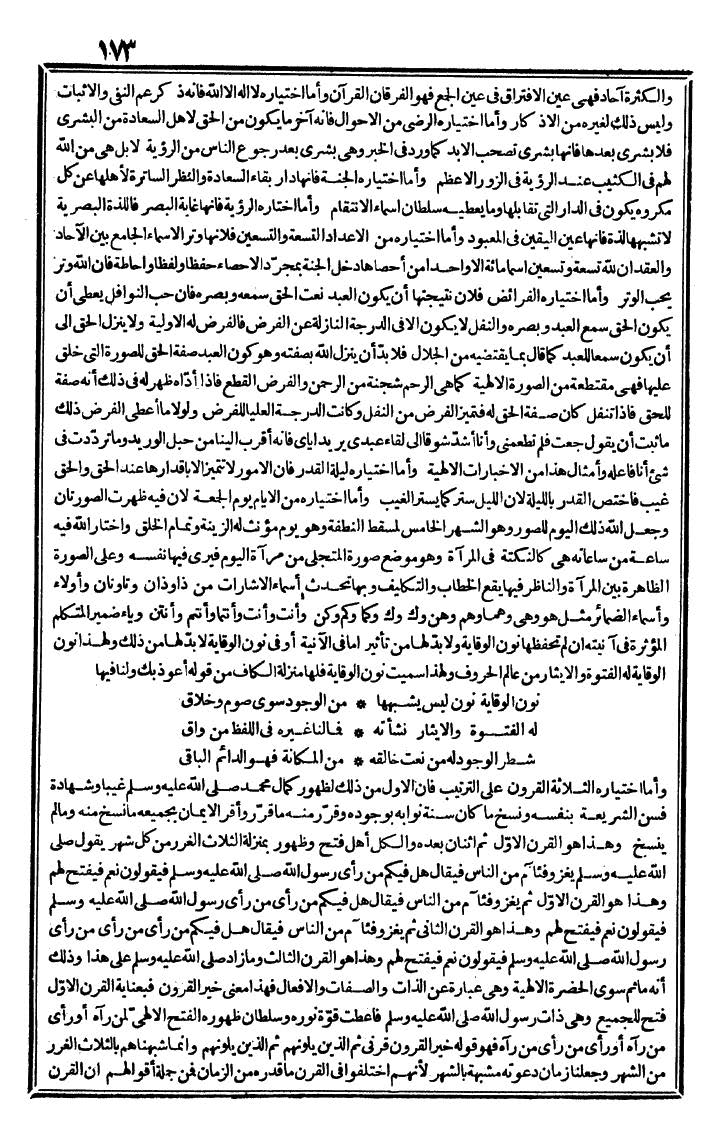 ١٧٣
والكثرة آحاد فهى عين الافتراق فى عين الجمع فهو الفرقان القرآن وأما اختياره لا اله الا الله فانه ذكر عم النفى والاثبات
وليس ذلك لغيره من الاذكار وأما اختياره الرضى من الاحوال فانه آخر ما يكون من الحق لاهل السعادة من البشرى
فلا بشرى بعدها فانها بشرى تصحب الابد كما ورد فى الخبر وهى بشرى بعد رجوع الناس من الرؤية لا بل هى من الله
لهم فى الكثيب عند الرؤية فى الزور الاعظم وأما اختياره الجنة فانها دار بقاء السعادة والنظر الساترة لأهلها عن كل
مكروه يكون فى الدار التى تقابلها وما يعطيه سلطان اسماء الانتقام وأما اختاره الرؤية فانها غاية البصر فاللذة البصرية
لا تشبهها لذة فانها عين اليقين فى المعبود وأما اختياره من الاعداد التسعة والتسعين فلانها وتر الاسماء الجامع بين الآحاد
والعقد ان لله تسعة وتسعين اسما مائة الا واحدا من أحصاها دخل الجنة بمجرد الاحصاء حفظا ولفظا واحاطة فان الله وتر
يحب الوتر وأما اختياره الفرائض فلان نتيجتها أن يكون العبد نعت الحق سمعه وبصره فان حب النوافل يعطى أن
يكون الحق سمع العبد وبصره والنفل لا يكون الا فى الدرجة النازلة عن الفرض فالفرض له الاولية ولا ينزل الحق الى
أن يكون سمعا للعبد كما قال بما يقتضيه من الجلال فلا بدّ أن ينزل الله بصفته وهو كون العبد صفة الحق للصورة التى خلق
عليها فهى مقتطعة من الصورة الالهية كما هى الرحم شجنة من الرحمن والفرض القطع فاذا أدّاه ظهر له فى ذلك أنه صفة
للحق فاذا تنفل كان صفة الحق له فتميز الفرض من النفل وكانت الدرجة العليا للفرض ولولا ما أعطى الفرض ذلك
ما ثبت أن يقول جعت فلم تطعمنى وأنا أشدّ شوقا الى لقاء عبدى يريد اياى فانه أقرب الينا من حبل الوريد وما تردّدت فى
شئ أنا فاعله وأمثال هذا من الاخبارات الالهية وأما اختياره ليلة القدر فان الامور لا تتميز الا باقدارها عند الحق والحق
غيب فاختص القدر بالليلة لان الليل ستر كما يستر الغيب وأما اختياره من الايام يوم الجمعة لان فيه ظهرت الصورتان
وجعل الله ذلك اليوم للصور وهو الشهر الخامس لمسقط النطفة وهو يوم مؤنث له الزينة وتمام الخلق واختار الله فيه
ساعة من ساعاته هى كالنكتة فى المرآة وهو موضع صورة المتجلى من مرآة اليوم فيرى فيها نفسه وعلى الصورة
الظاهرة بين المرآة والناظر فيها يقع الخطاب والتكليف وبها تحدث أسماء الاشارات من ذا وذان وتا وتان وأولاء
وأسماء الضمائر مثل هو وهى وهما وهم وهن وك وك وكما وكم وكن وأنت وأنت وأنتما وأنتم وأنتن وياء ضمير المتكلم
المؤثرة فى آنيته ان لم تحفظها نون الوقاية ولا بدّ لها من تأثير اما فى الآنية أو فى نون الوقاية لا بدّ لها من ذلك ولهذا نون
الوقاية له الفتوة والايثار من عالم الحروف ولهذا سميت نون الوقاية فلها منزلة الكاف من قوله أعوذ بك ولنا فيها
نون الوقاية نون ليس يشبهها * من الوجود سوى صوم وخلاق
له الفتوة والايثار نشأته * فمالنا غيره فى اللفظ من واق
شطر الوجود له من نعت خالقه * من المكانة فهو الدائم الباقى
وأما اختياره الثلاثة القرون على الترتيب فان الاول من ذلك لظهور كمال محمد صلى الله عليه وسلم غيبا وشهادة
فسن الشريعة بنفسه ونسخ ما كان سنة نوابه بوجوده وقرّر منه ما قرّر وأقر الايمان بجميعه ما نسخ منه وما لم
ينسخ وهذا هو القرن الاوّل ثم اثنان بعده والكل أهل فتح وظهور بمنزلة الثلاث الغرر من كل شهر يقول صلى
الله عليه وسلم يغزو فئام من الناس فيقال هل فيكم من رأى رسول الله صلى الله عليه وسلم فيقولون نعم فيفتح لهم
وهذا هو القرن الاوّل ثم يغزو فئام من الناس فيقال هل فيكم من رأى من رأى رسول الله صلى الله عليه وسلم
فيقولون نعم فيفتح لهم وهذا هو القرن الثانى ثم يغزو فئام من الناس فيقال هل فيكم من رأى من رأى من رأى
رسول الله صلى الله عليه وسلم فيقولون نعم فيفتح لهم وهذا هو القرن الثالث وما زاد صلى الله عليه وسلم على هذا وذلك
أنه ما ثم سوى الحضرة الالهية وهى عبارة عن الذات والصفات والافعال فهذا معنى خير القرون فبعناية القرن الاوّل
فتح للجميع وهى ذات رسول الله صلى الله عليه وسلم فاعطت قوّة نوره وسلطان ظهوره الفتح الالهىّ لمن رآه أو رأى
من رآه أو رأى من رأى من رآه فهو قوله خير القرون قرنى ثم الذين يلونهم ثم الذين يلونهم وانما شبهناهم بالثلاث الغرر
من الشهر وجعلنا زمان دعوته مشبهة بالشهر لأنهم اختلفوا فى القرن ما قدره من الزمان فمن جملة أقوالهم ان القرن